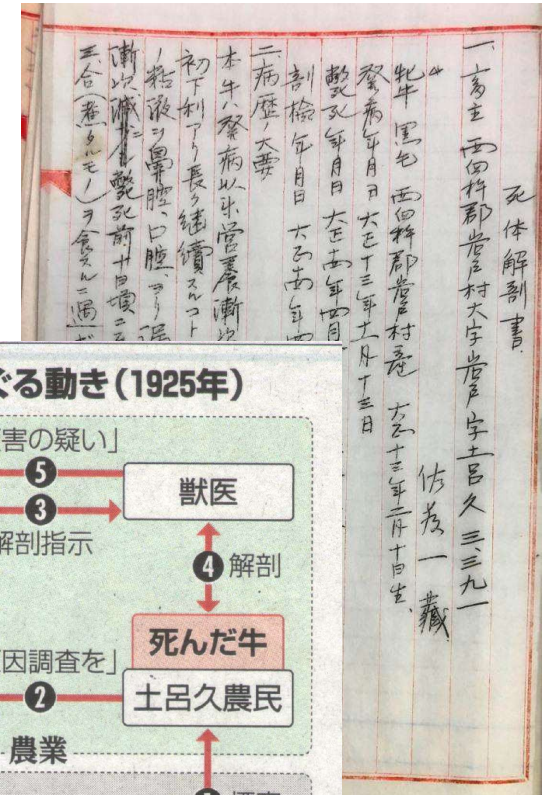 死体解剖書
一、畜主 西臼杵郡岩戸村大字岩戸字土呂久三、三九一
佐藤一藏
牝牛 黒毛 西臼杵郡岩戸村産 大正十三年二月十日生、
発病年月日 大正十三年十一月十三日
斃死年月日 大正
剖検年月日 大正
二、病歴ノ大要
本牛ハ発病以来営養漸次
初下利アリ長ク継續スルコト
ノ粘液ヲ鼻腔、口腔、ヨリ
漸次減ジ斃死前十日頃ニ
三合(煮タルモノ)ヲ食スルニ過
ぐる動き(1925年)
害の疑い」
5
3
解剖指示
獣医
4 解剖
死んだ牛
因調査を」
2
土呂久農民
農業